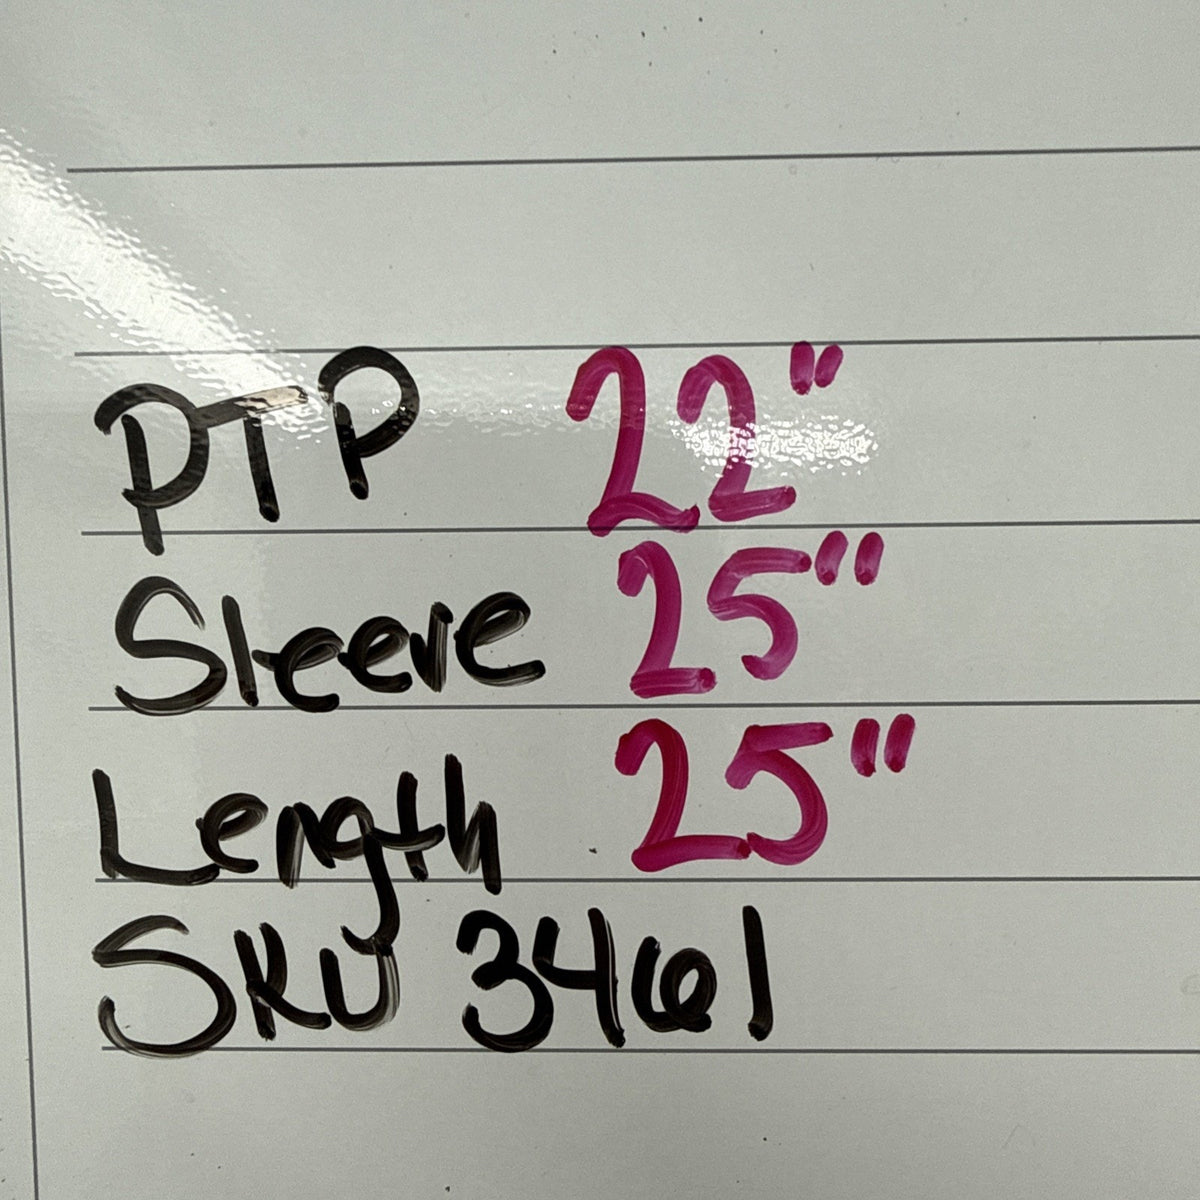 PTP 22"
Sleeve 25"
Length 25"
SKU 3461